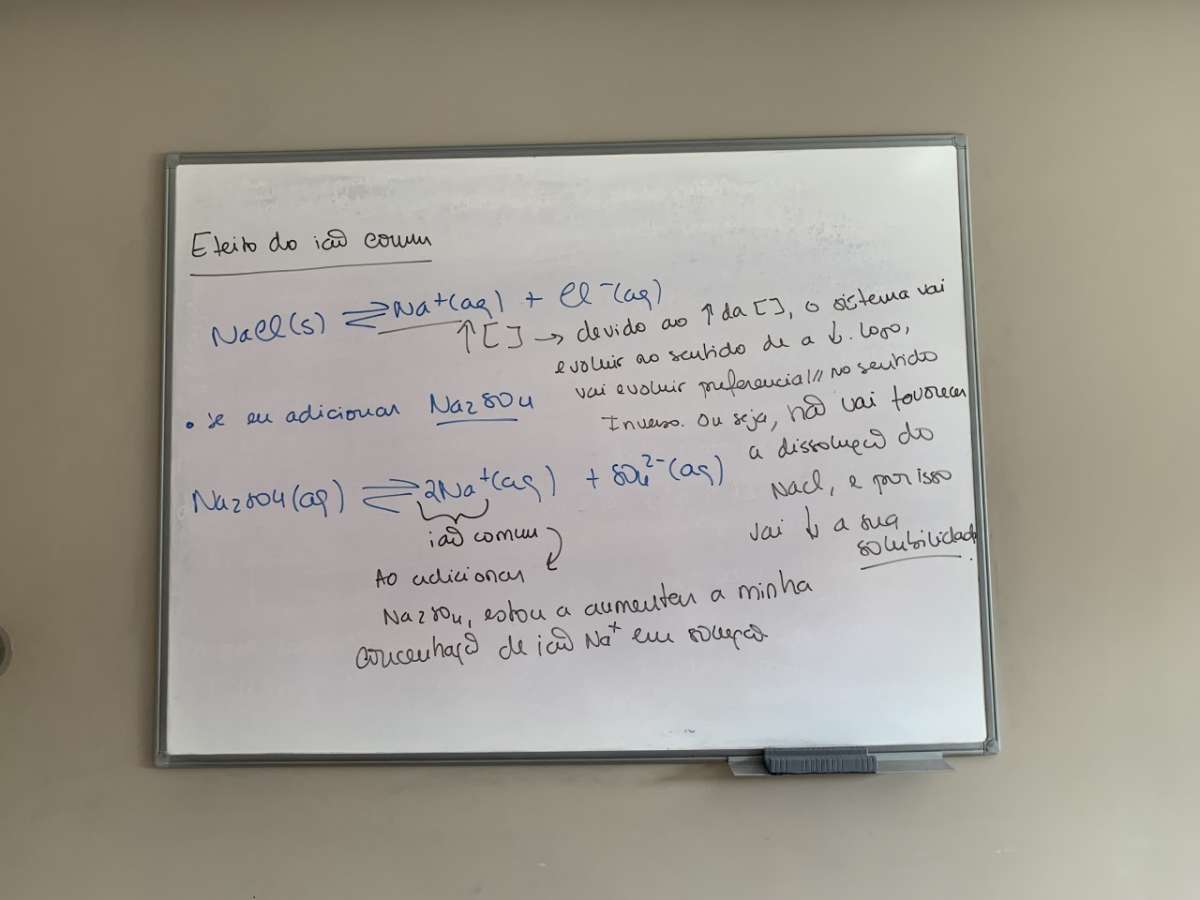 Efeito do ião comum
NaCl(s) ⇌ Na+(aq) + Cl-(aq)
↑[ ] → devido ao ↑ da [ ], o sistema vai
evoluir ao sentido de a ↓. logo,
vai evoluir preferencial// no sentido
Inverso. Ou seja, não vai favorecer
a dissolução do
NaCl, e por isso
vai ↓ a sua
solubilidade.
• se eu adicionar Na2SO4
Na2SO4(aq) ⇌ 2Na+(aq) + SO4 2-(aq)
ião comum
Ao adicionar
Na2SO4, estou a aumentar a minha
concentração de ião Na+ em solução